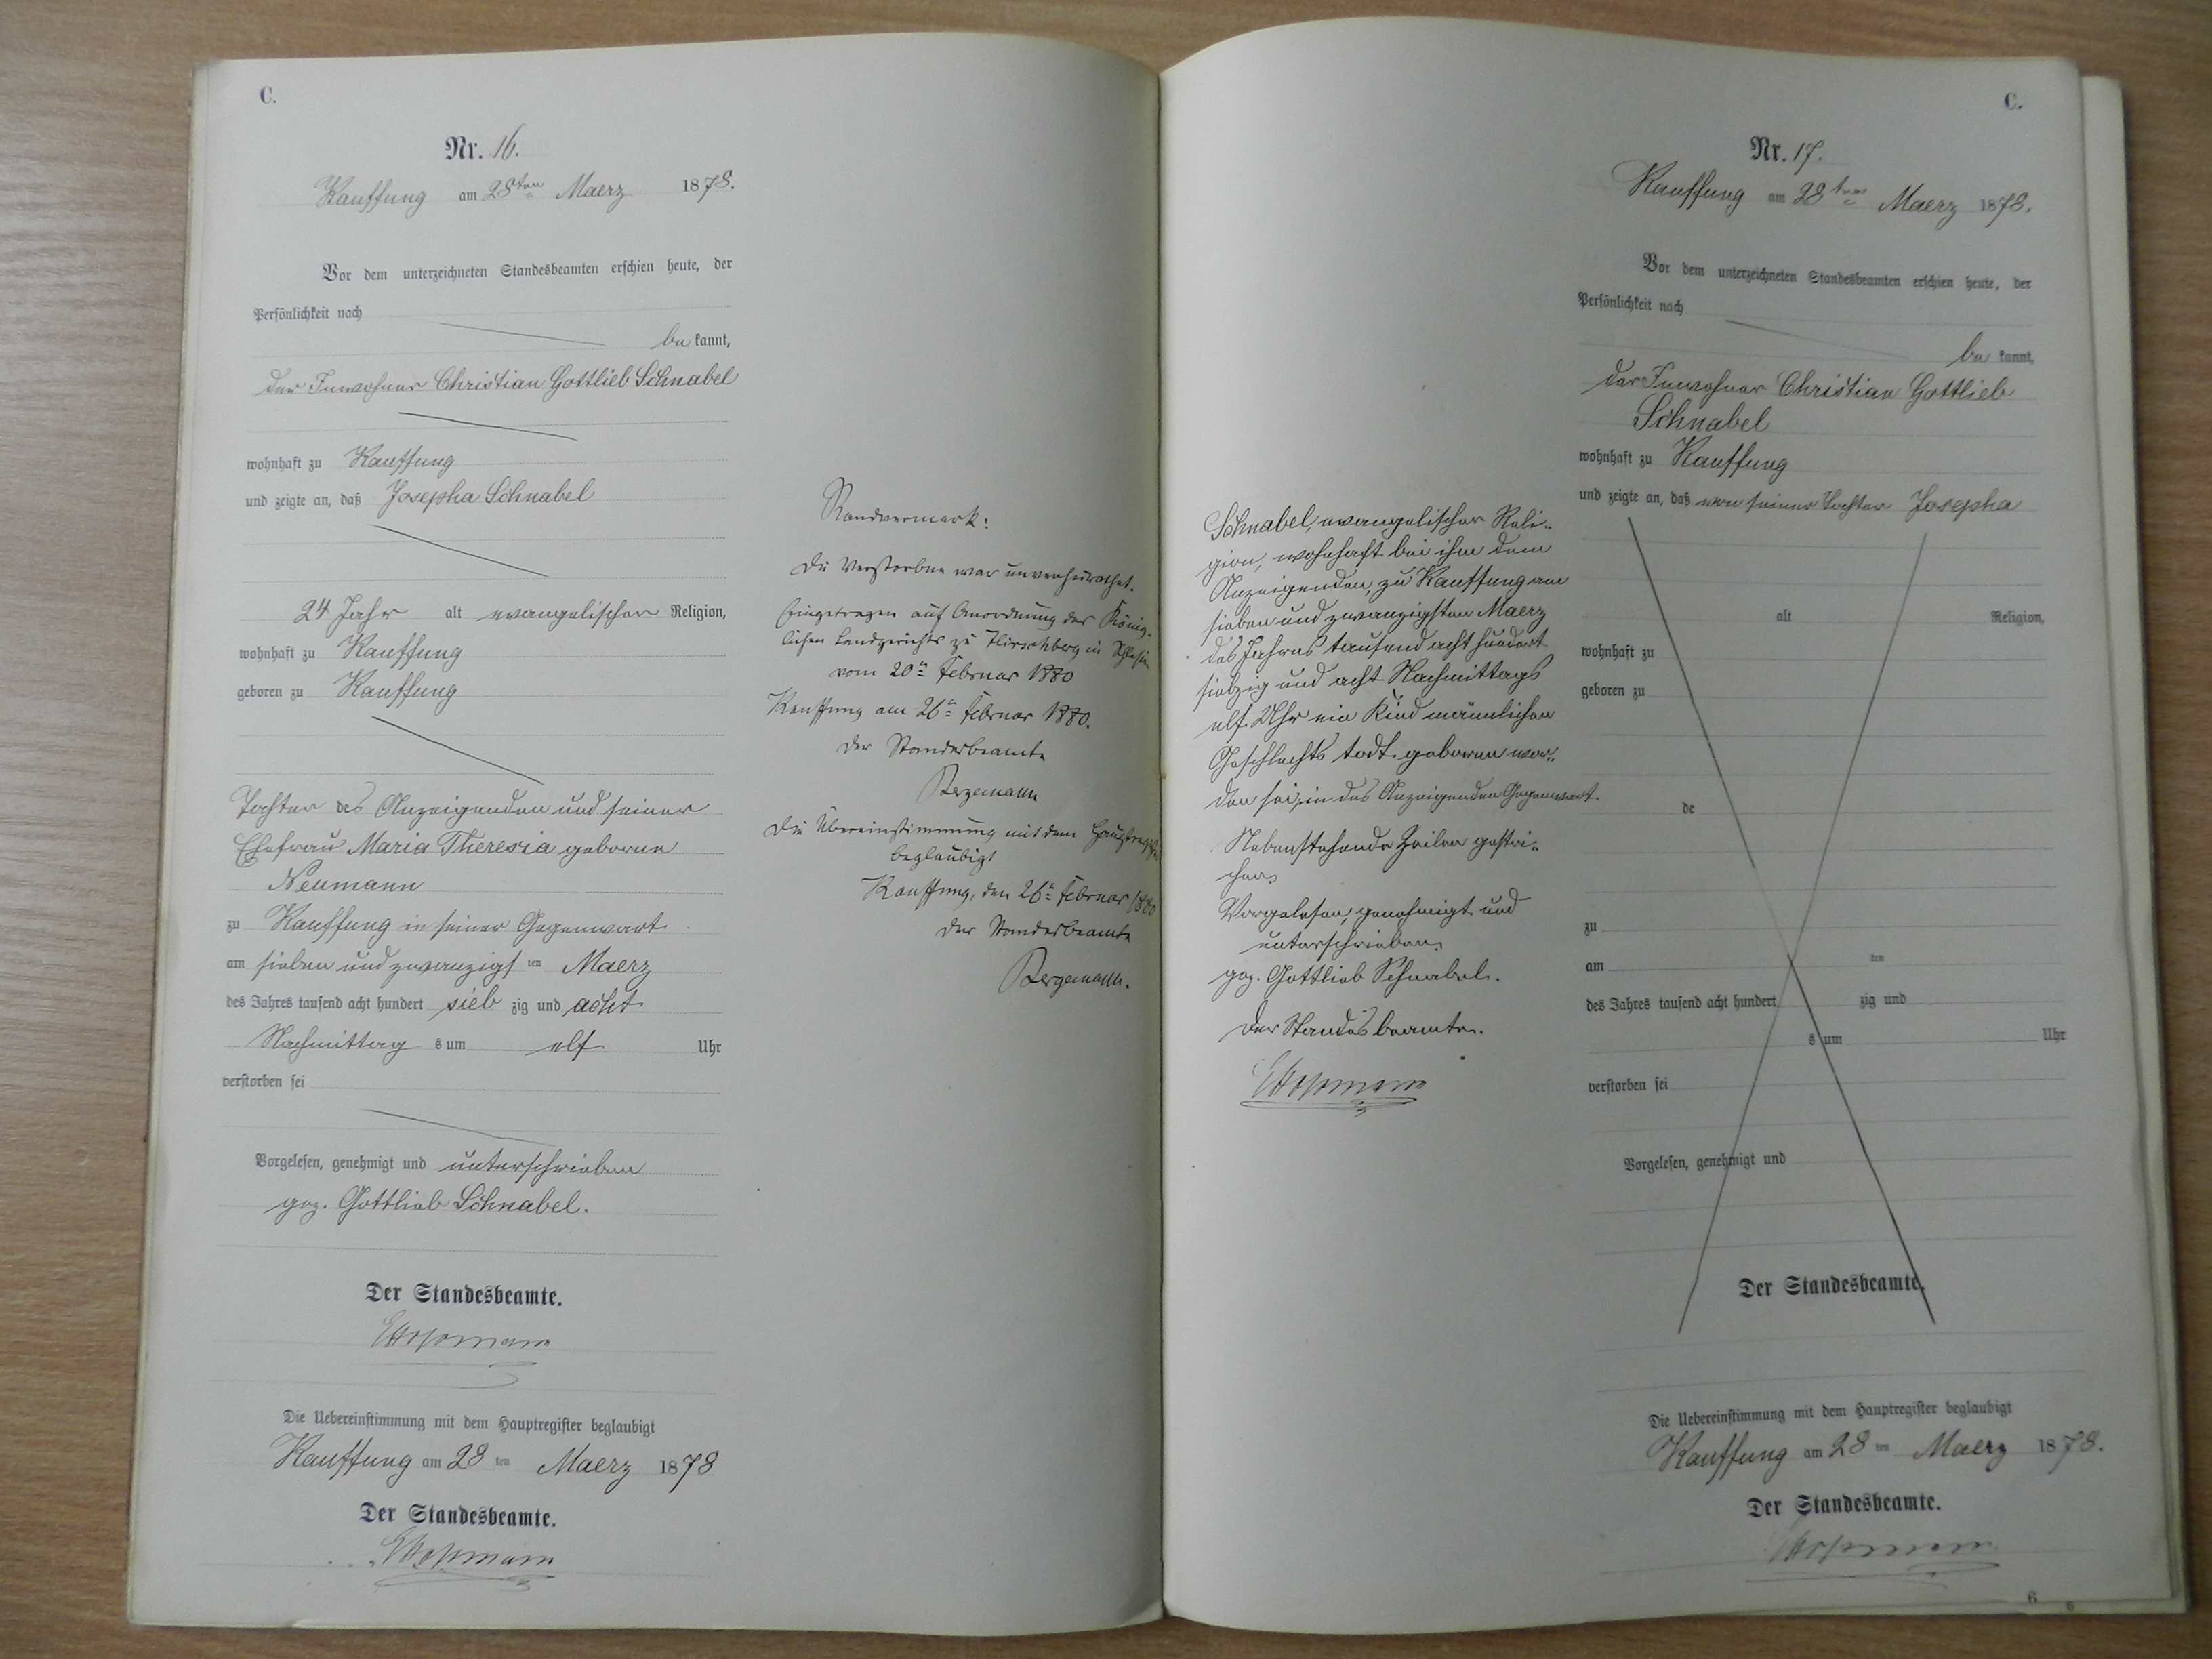 C.
Nr. 16.
Kauffung am 28ten Maerz 1878.
Vor dem unterzeichneten Standesbeamten erschien heute, der
Persönlichkeit nach
be kannt,
der Inwohner Christian Gottlieb Schnabel
wohnhaft zu Kauffung
und zeigte an, daß Josepha Schnabel
24 Jahr alt evangelischer Religion,
wohnhaft zu Kauffung
geboren zu Kauffung
Tochter des Anzeigenden und seiner
Ehefrau Maria Theresia geborne
Neumann
zu Kauffung in seiner Gegenwart
am sieben und zwanzigs ten Maerz
des Jahres tausend acht hundert sieb zig und acht
Nachmittag s um elf Uhr
verstorben sei
Vorgelesen, genehmigt und unterschrieben
gez. Gottlieb Schnabel.
Der Standesbeamte.
Die Uebereinstimmung mit dem Hauptregister beglaubigt
Kauffung am 28 ten Maerz 1878
Der Standesbeamte.
Randvermerk:
Die Verstorbne war unverheirathet.
Eingetragen auf Anordnung des König-
lichen Landgerichts zu Hirschberg in Schlesien
vom 20ten Februar 1880
Kauffung am 26ten Februar 1880.
Der Standesbeamte
Bergemann
Die Übereinstimmung mit dem Hauptregister
beglaubigt
Kauffung, den 26ten Februar 1880
Der Standesbeamte
Bergemann.
C.
Nr. 17.
Kauffung am 28ten Maerz 1878.
Vor dem unterzeichneten Standesbeamten erschien heute, der
Persönlichkeit nach
be kannt,
der Inwohner Christian Gottlieb
Schnabel
wohnhaft zu Kauffung
und zeigte an, daß von seiner Tochter Josepha
Schnabel, evangelischer Reli-
gion, wohnhaft bei ihm dem
Anzeigenden, zu Kauffung am
sieben und zwanzigsten Maerz
des Jahres tausend acht hundert
siebzig und acht Nachmittags
elf Uhr ein Kind männlichen
Geschlechts todt geboren wor-
den sei, in des Anzeigenden Gegenwart.
Nebenstehende Zeilen gestri-
chen.
Vorgelesen, genehmigt und
unterschrieben.
gez. Gottlieb Schnabel.
Der Standesbeamte.
alt Religion,
wohnhaft zu
geboren zu
de
zu
am ten
des Jahres tausend acht hundert zig und
s um Uhr
verstorben sei
Vorgelesen, genehmigt und
Der Standesbeamte.
Die Uebereinstimmung mit dem Hauptregister beglaubigt
Kauffung am 28 ten Maerz 1878.
Der Standesbeamte.
6